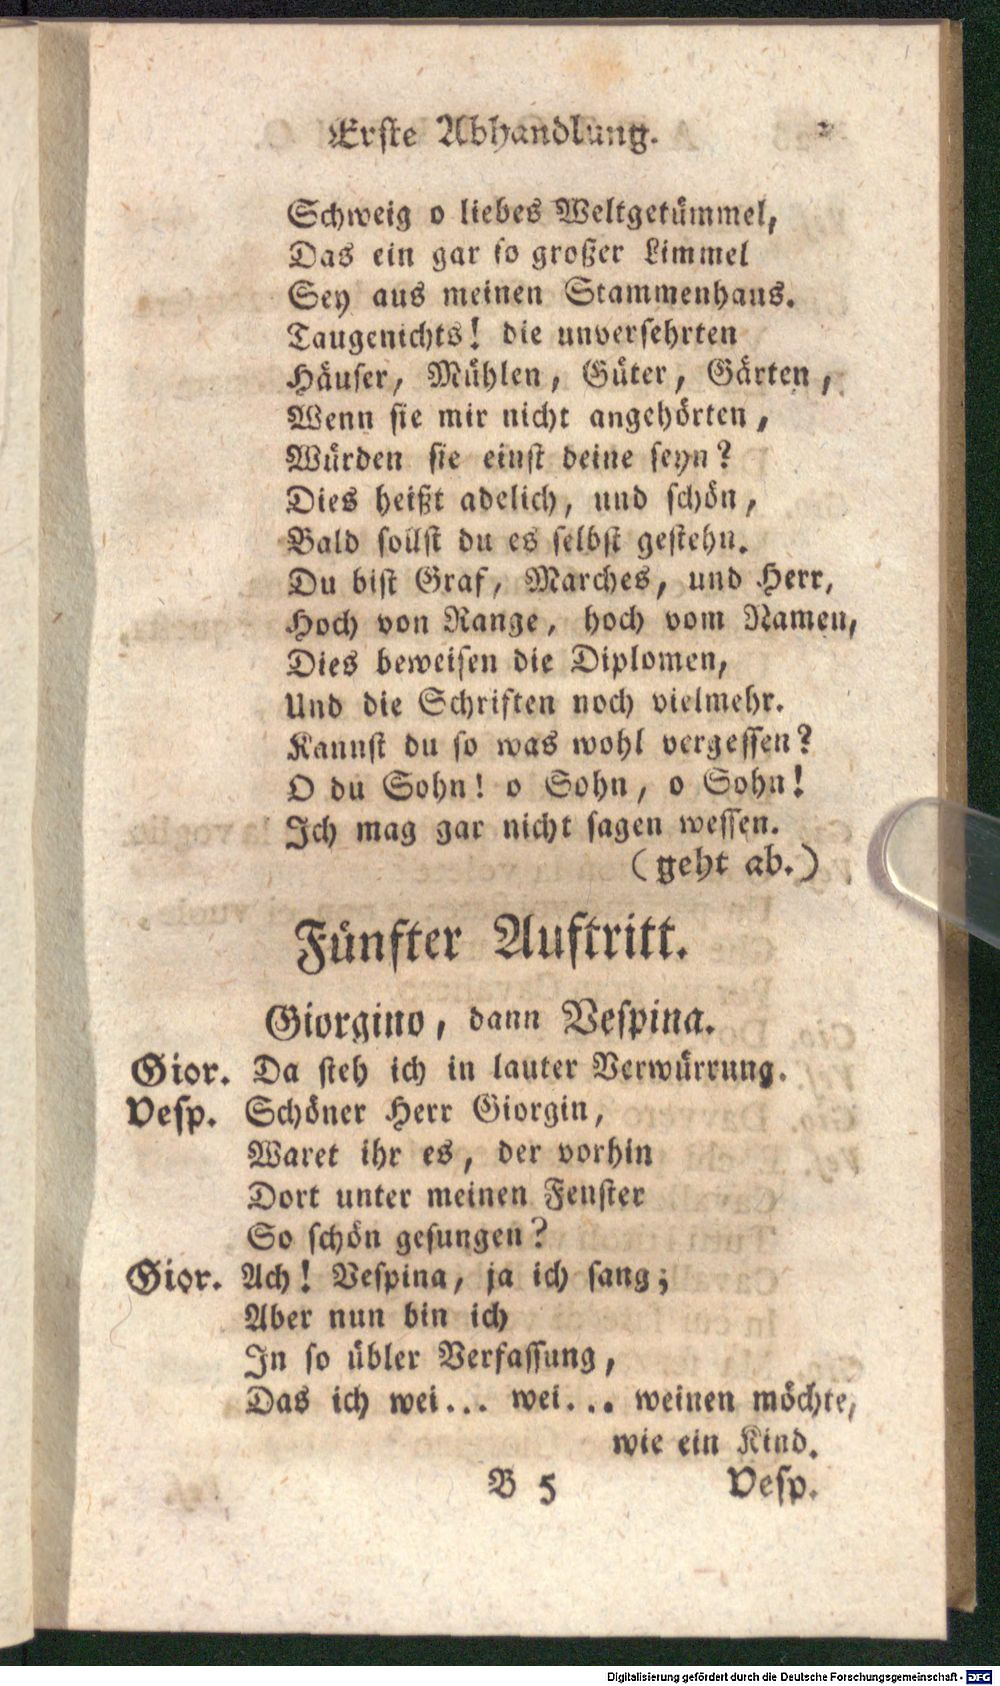 Erste Abhandlung.
Schweig o liebes Weltgetümmel,
Das ein gar so großer Limmel
Sey aus meinen Stammenhaus.
Taugenichts! die unversehrten
Häuser, Mühlen, Güter, Gärten,
Wenn sie mir nicht angehörten,
Würden sie einst deine seyn?
Dies heißt adelich, und schön,
Bald sollst du es selbst gestehn.
Du bist Graf, Marches, und Herr,
Hoch von Range, hoch vom Namen,
Dies beweisen die Diplomen,
Und die Schriften noch vielmehr.
Kannst du so was wohl vergessen?
O du Sohn! o Sohn, o Sohn!
Ich mag gar nicht sagen wessen.
(geht ab.)
Fünfter Auftritt.
Giorgino, dann Vespina.
Gior. Da steh ich in lauter Verwürrung.
Vesp. Schöner Herr Giorgin,
Waret ihr es, der vorhin
Dort unter meinen Fenster
So schön gesungen?
Gior. Ach! Vespina, ja ich sang;
Aber nun bin ich
In so übler Verfassung,
Das ich wei... wei... weinen möchte,
wie ein Kind.
B 5 Vesp.
Digitalisierung gefördert durch die Deutsche Forschungsgemeinschaft - DFG